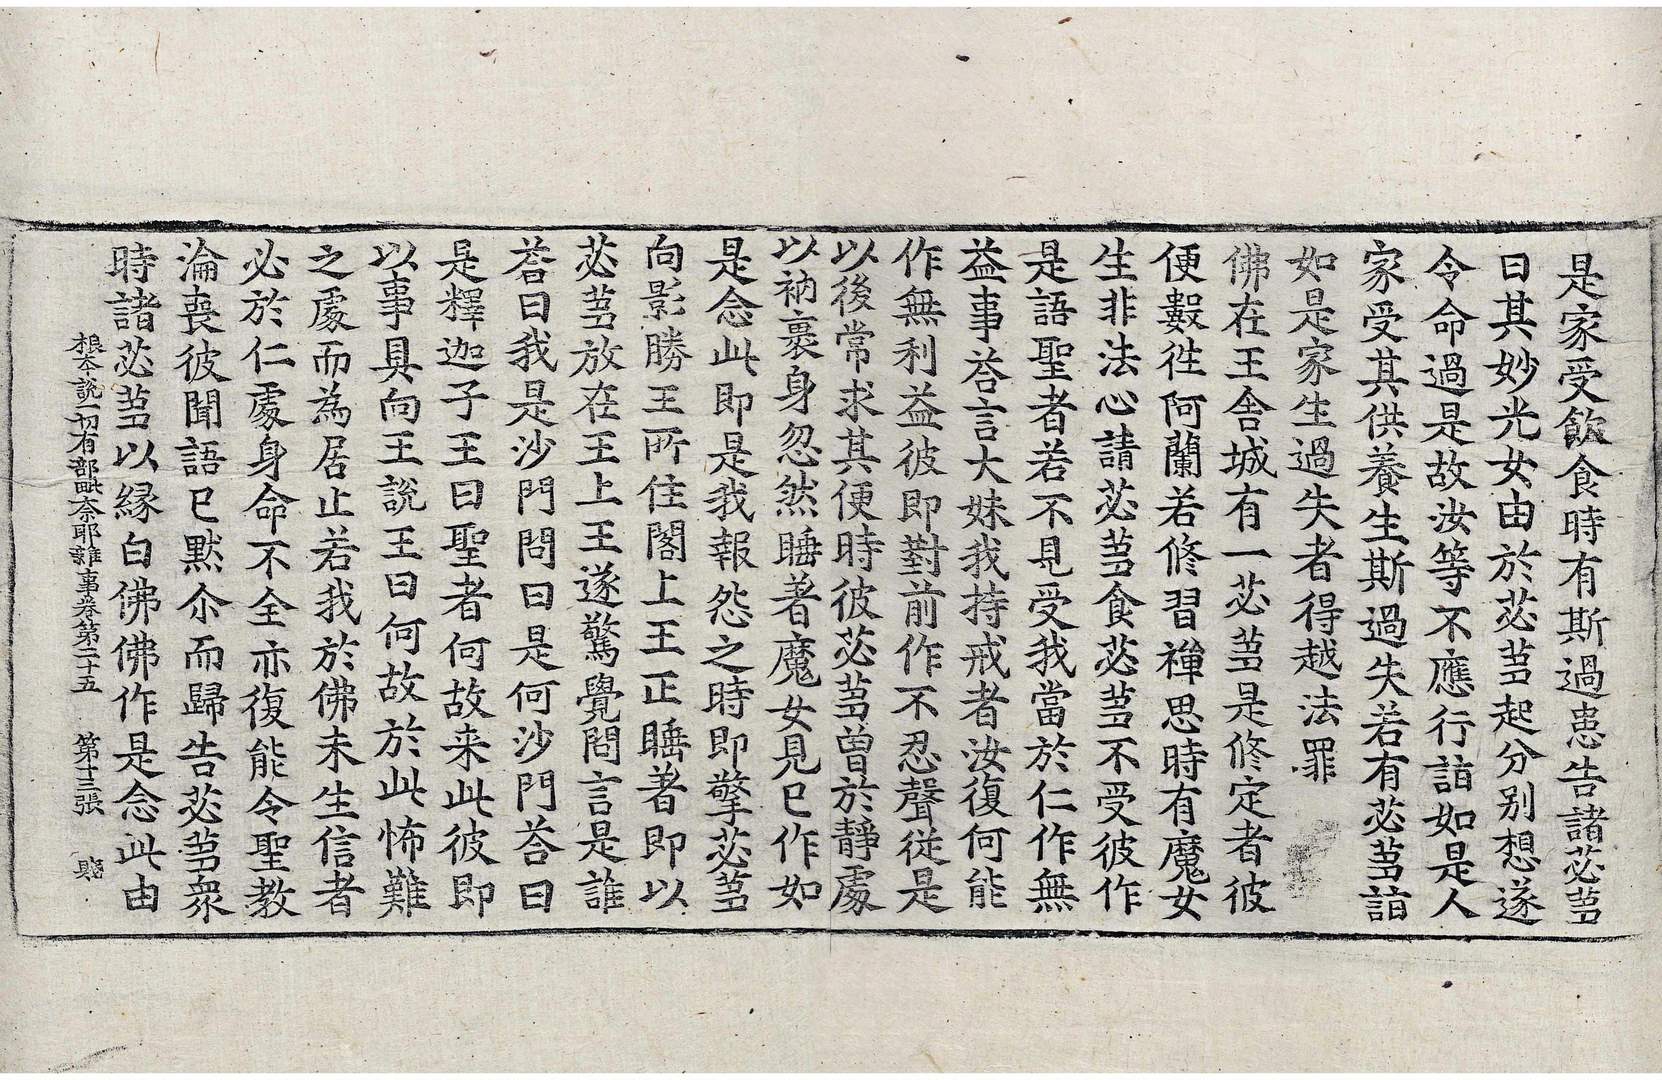 是家受飲食時有斯過患告諸苾芻
曰其妙光女由於苾芻起分別想遂
令命過是故汝等不應行詣如是人
家受其供養生斯過失若有苾芻詣
如是家生過失者得越法罪
佛在王舍城有一苾芻是修定者彼
便數往阿蘭若修習禪思時有魔女
生非法心請苾芻食苾芻不受彼作
是語聖者若不見受我當於仁作無
益事荅言大妹我持戒者汝復何能
作無利益彼即對前作不忍聲從是
以後常求其便時彼苾芻曾於靜處
以衲裹身忽然睡著魔女見已作如
是念此即是我報怨之時即擎苾芻
向影勝王所住閣上王正睡著即以
苾芻放在王上王遂驚覺問言是誰
荅曰我是沙門問曰是何沙門荅曰
是釋迦子王曰聖者何故来此彼即
以事具向王說王曰何故於此怖難
之處而為居止若我於佛未生信者
必於仁處身命不全亦復能令聖教
淪喪彼聞語已默尒而歸告苾芻衆
時諸苾芻以緣白佛佛作是念此由
根本說一切有部毗奈耶雜事卷第二十五 第十三張